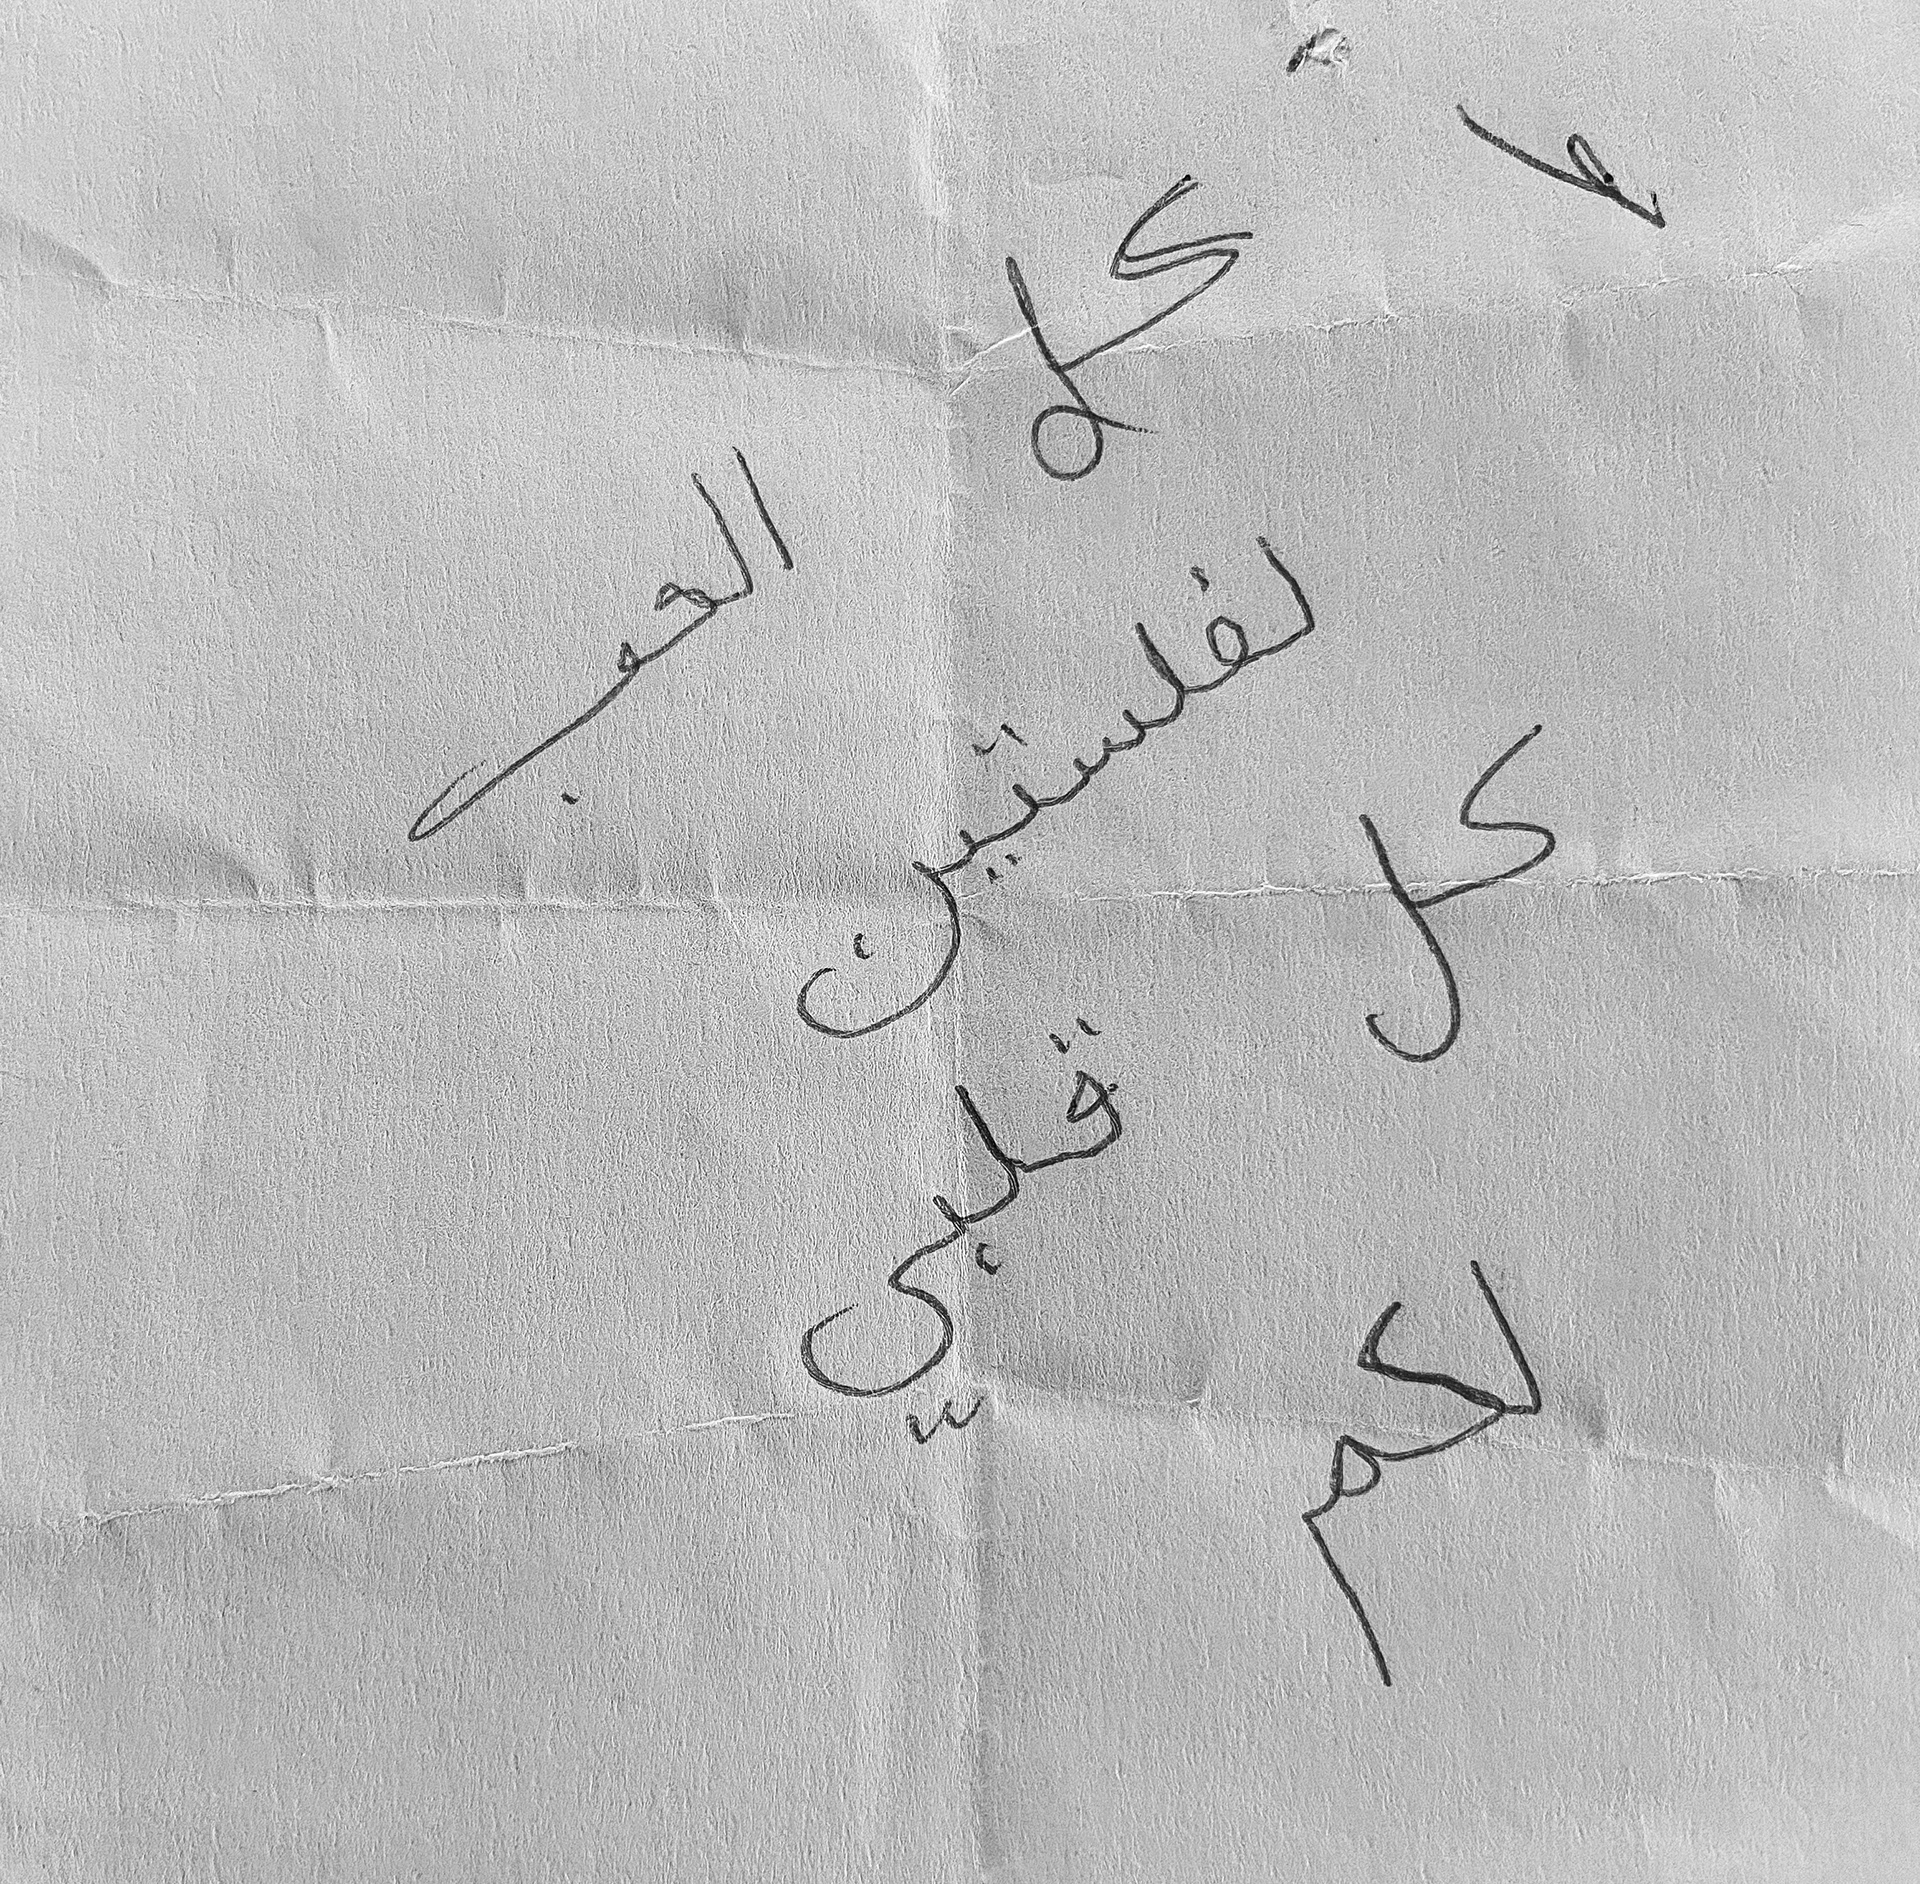 كله الحب
لفلستين
كل قلبي
لكم